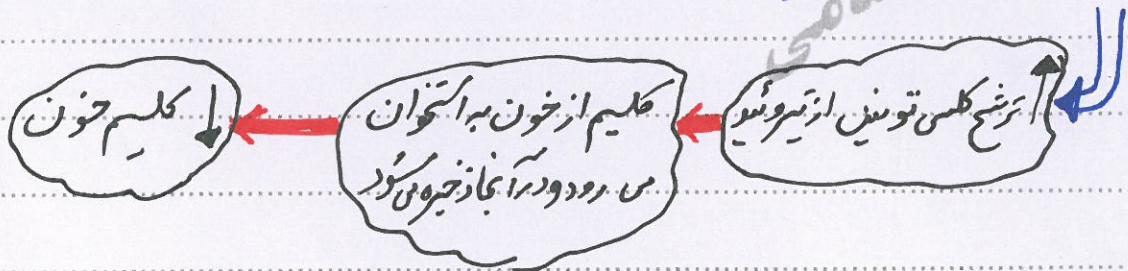 ↑ ترشح کلسی تونین از تیروئید
کلسیم از خون به استخوان
می رود و در آنجا ذخیره می شود
↓ کلسیم خون